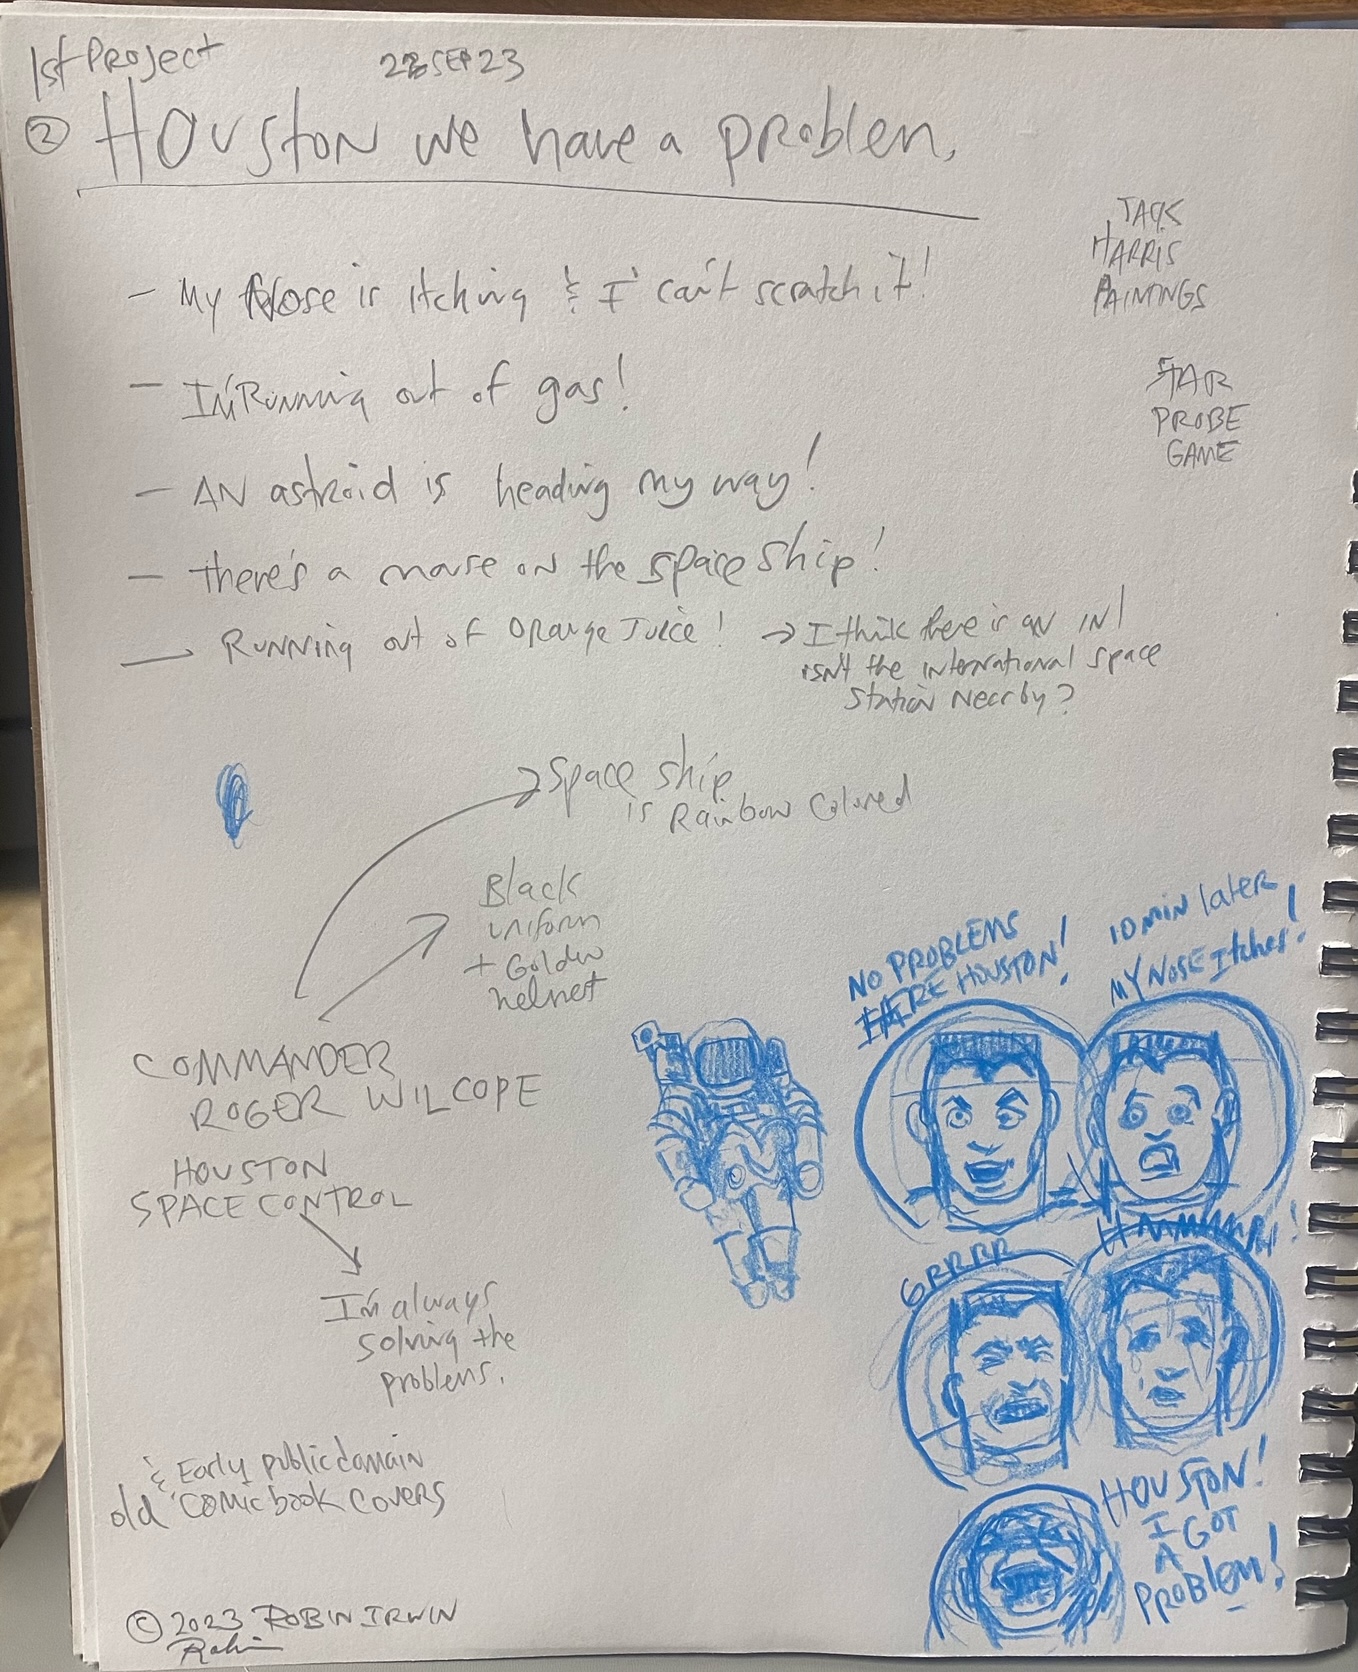 1st Project
28 SEP 23
② Houston we have a problem.
- My Nose is itching & I can't scratch it!
- I'm Running out of gas!
- AN astroid is heading my way!
- There's a mouse on the space ship!
- Running out of Orange Juice! → I think there is an IN!
isn't the international space
station nearby?
JACK
HARRIS
PAINTINGS
STAR
PROBE
GAME
Space ship
is Rainbow Colored
Black
uniform
+ Golden
helmet
COMMANDER
ROGER WILCOPE
HOUSTON
SPACE CONTROL
I'm always
solving the
problems.
& Early public domain
old comic book covers
© 2023 ROBIN IRWIN
Robin
NO PROBLEMS
HERE HOUSTON!
10 MIN later
MY NOSE Itches!
GRRRR
HMMMMM!
HOUSTON!
I GOT
A
PROBLEM!